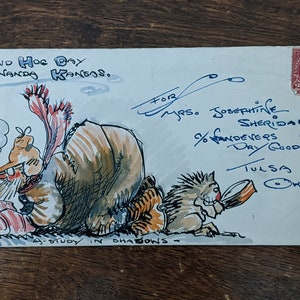 ND HOG DAY
NANDA KANSAS.
FOR
MRS. JOSEPHINE
SHERIDA
C/O VANDEVERS
DRY GOOD
TULSA
A STUDY IN SHADOWS -